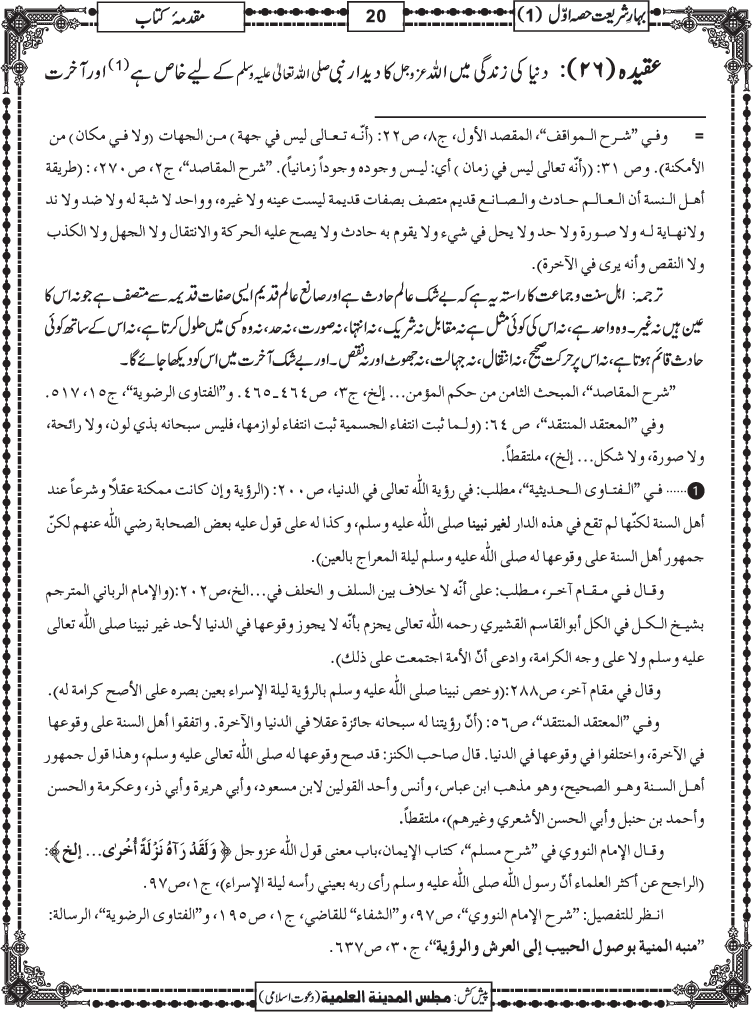 بہار شریعت حصہ اوّل (1)
20
مقدمۂ کتاب
عقیدہ (۲۶): دنیا کی زندگی میں اللہ عزوجل کا دیدار نبی صلی اللہ تعالیٰ علیہ وسلم کے لیے خاص ہے (1) اور آخرت
= وفي ”شرح المواقف“، المقصد الأول، ج۸، ص۲۲: (أنّه تعالى ليس في جهة) من الجهات (ولا في مكان) من
الأمكنة). وص ۳۱: ((أنّه تعالى ليس في زمان) أي: ليس وجوده وجوداً زمانياً). ”شرح المقاصد“، ج۲، ص۲۷۰،: (طريقة
أهل النسة أن العالم حادث والصانع قديم متصف بصفات قديمة ليست عينه ولا غيره، وواحد لا شبة له ولا ضد ولا ند
ولانهاية له ولا صورة ولا حد ولا يحل في شيء ولا يقوم به حادث ولا يصح عليه الحركة والانتقال ولا الجهل ولا الكذب
ولا النقص وأنه يرى في الآخرة).
ترجمہ: اہل سنت وجماعت کا راستہ یہ ہے کہ بے شک عالم حادث ہے اور صانع عالم قدیم ایسی صفات قدیمہ سے متصف ہے جو نہ اس کا
عین ہیں نہ غیر۔ وہ واحد ہے، نہ اس کی کوئی مثل ہے نہ مقابل نہ شریک، نہ انتہا، نہ صورت، نہ حد، نہ وہ کسی میں حلول کرتا ہے، نہ اس کے ساتھ کوئی
حادث قائم ہوتا ہے، نہ اس پر حرکت صحیح، نہ انتقال، نہ جہالت، نہ جھوٹ اور نہ نقص۔ اور بے شک آخرت میں اس کو دیکھا جائے گا۔
”شرح المقاصد“، المبحث الثامن من حكم المؤمن... إلخ، ج۳، ص٤٦٤ـ٤٦٥. و”الفتاوى الرضوية“، ج۱۵، ۵۱۷.
وفي ”المعتقد المنتقد“، ص ٦٤: (ولما ثبت انتفاء الجسمية ثبت انتفاء لوازمها، فليس سبحانه بذي لون، ولا رائحة،
ولا صورة، ولا شكل... إلخ)، ملتقطاً.
1 ...... في ”الفتاوى الحديثية“، مطلب: في رؤية اللّٰه تعالى في الدنيا، ص۲۰۰: (الرؤية وإن كانت ممكنة عقلاً وشرعاً عند
أهل السنة لكنّها لم تقع في هذه الدار لغير نبينا صلى اللّٰه عليه وسلم، وكذا له على قول عليه بعض الصحابة رضي اللّٰه عنهم لكنّ
جمهور أهل السنة على وقوعها له صلى اللّٰه عليه وسلم ليلة المعراج بالعين).
وقال في مقام آخر، مطلب: على أنّه لا خلاف بين السلف و الخلف في...الخ،ص۲۰۲:(والإمام الرباني المترجم
بشيخ الكل في الكل أبوالقاسم القشيري رحمه اللّٰه تعالى يجزم بأنّه لا يجوز وقوعها في الدنيا لأحد غير نبينا صلى اللّٰه تعالى
عليه وسلم ولا على وجه الكرامة، وادعى أنّ الأمة اجتمعت على ذلك).
وقال في مقام آخر، ص۲۸۸:(وخص نبينا صلى اللّٰه عليه وسلم بالرؤية ليلة الإسراء بعين بصره على الأصح كرامة له).
وفي ”المعتقد المنتقد“، ص٥٦: (أنّ رؤيتنا له سبحانه جائزة عقلا في الدنيا والآخرة. واتفقوا أهل السنة على وقوعها
في الآخرة، واختلفوا في وقوعها في الدنيا. قال صاحب الكنز: قد صح وقوعها له صلى اللّٰه تعالى عليه وسلم، وهذا قول جمهور
أهل السنة وهو الصحيح، وهو مذهب ابن عباس، وأنس وأحد القولين لابن مسعود، وأبي هريرة وأبي ذر، وعكرمة والحسن
وأحمد بن حنبل وأبي الحسن الأشعري وغيرهم)، ملتقطاً.
وقال الإمام النووي في ”شرح مسلم“، كتاب الإيمان،باب معنى قول اللّٰه عزوجل ﴿وَلَقَدْ رَآهُ نَزْلَةً أُخْرَى... إلخ﴾:
(الراجح عن أكثر العلماء أنّ رسول اللّٰه صلى اللّٰه عليه وسلم رأى ربه بعيني رأسه ليلة الإسراء)، ج۱،ص۹۷.
انظر للتفصيل: ”شرح الإمام النووي“، ص۹۷، و”الشفاء“ للقاضي، ج۱، ص۱۹۵، و”الفتاوى الرضوية“، الرسالة:
”منبه المنية بوصول الحبيب إلى العرش والرؤية“، ج۳۰، ص۶۳۷.
پیش کش: مجلس المدينة العلمية (دعوت اسلامی)